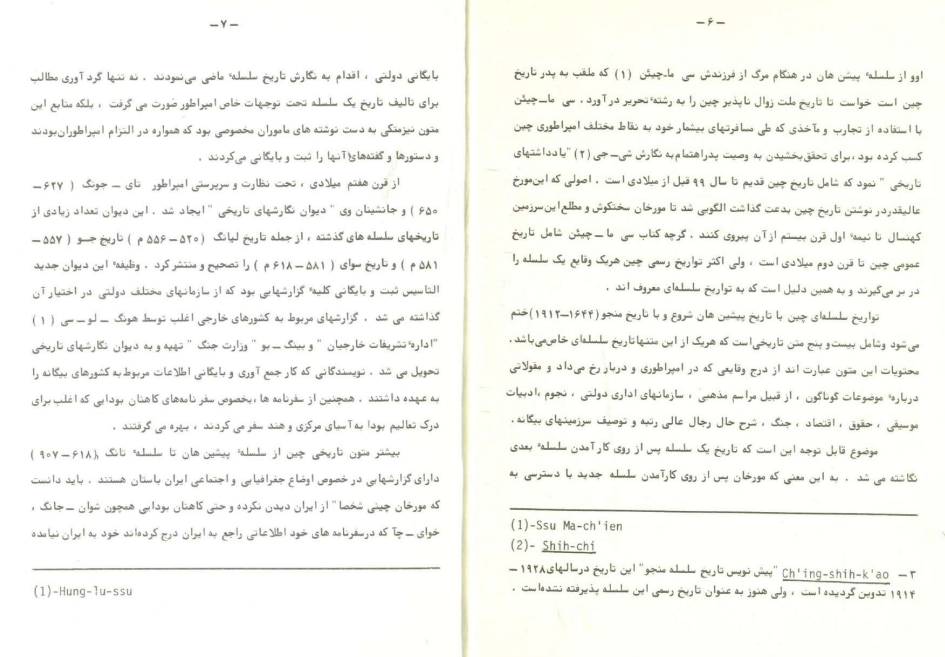 ـ ۶ ـ
اوو از سلسله' پیشن هان در هنگام مرگ از فرزندش سی ماـچیئن (۱) که ملقب به پدر تاریخ
چین است خواست تا تاریخ ملت زوال ناپذیر چین را به رشته' تحریر در آورد. سی ماــچیئن
با استفاده از تجارب و مآخذی که طی مسافرتهای بیشمار خود به نقاط مختلف امپراطوری چین
کسب کرده بود، برای تحقق بخشیدن به وصیت پدر اهتمام به نگارش شی‌ـ جی (۲) "یادداشتهای
تاریخی " نمود که شامل تاریخ چین قدیم تا سال ۹۹ قبل از میلادی است . اصولی که این مورخ
عالیقدر در نوشتن تاریخ چین بدعت گذاشت الگویی شد تا مورخان سختکوش و مطلع این سرزمین
کهنسال تا نیمه' اول قرن بیستم از آن پیروی کنند . گرچه کتاب سی ما ــ چیئن شامل تاریخ
عمومی چین تا قرن دوم میلادی است ، ولی اکثر تواریخ رسمی چین هریک وقایع یک سلسله را
در بر می‌گیرند و به همین دلیل است که به تواریخ سلسله‌ای معروف اند .
تواریخ سلسله‌ای چین با تاریخ پیشین هان شروع و با تاریخ منجو (۱۶۴۴ــ۱۹۱۲) ختم
می‌شود وشامل بیست و پنج متن تاریخی است که هریک از این متنها تاریخ سلسله‌ای خاص می‌باشد .
محتویات این متون عبارت اند از درج وقایعی که در امپراطوری و دربار رخ می‌داد و مقولاتی
درباره' موضوعات گوناگون ، از قبیل مراسم مذهبی ، سازمانهای اداری دولتی ، نجوم ،ادبیات
موسیقی ، حقوق ، اقتصاد ، جنگ ، شرح حال رجال عالی رتبه و توصیف سرزمینهای بیگانه .
موضوع قابل توجه این است که تاریخ یک سلسله پس از روی کار آمدن سلسله' بعدی
نگاشته می شد . به این معنی که مورخان پس از روی کارآمدن سلسله جدید با دسترسی به
(1)-Ssu Ma-ch'ien
(2)- Shih-chi
۳ ــ Ch'ing-shih-k'ao "پیش نویس تاریخ سلسله منجو" این تاریخ در سالهای ۱۹۲۸ ــ
۱۹۱۴ تدوین گردیده است ، ولی هنوز به عنوان تاریخ رسمی این سلسله پذیرفته نشده است .
ـ ۷ ـ
بایگانی دولتی ، اقدام به نگارش تاریخ سلسله' ماضی می‌نمودند . نه تنها گرد آوری مطالب
برای تالیف تاریخ یک سلسله تحت توجهات خاص امپراطور صورت می گرفت ، بلکه منابع این
متون نیز متکی به دست نوشته های ماموران مخصوصی بود که همواره در التزام امپراطوران بودند
و دستورها و گفته‌های آنها را ثبت و بایگانی می‌کردند .
از قرن هفتم میلادی ، تحت نظارت و سرپرستی امپراطور تای ــ جونگ ( ۶۲۷ــ
۶۵۰ ) و جانشینان وی " دیوان نگارشهای تاریخی " ایجاد شد . این دیوان تعداد زیادی از
تاریخهای سلسله های گذشته ، از جمله تاریخ لیانگ (۵۲۰ــ ۵۵۶ م ) تاریخ جــو ( ۵۵۷ــ
۵۸۱ م ) و تاریخ سوای ( ۵۸۱ ــ ۶۱۸ م ) را تصحیح و منتشر کرد . وظیفه' این دیوان جدید
التاسیس ثبت و بایگانی کلیه' گزارشهایی بود که از سازمانهای مختلف دولتی در اختیار آن
گذاشته می شد . گزارشهای مربوط به کشورهای خارجی اغلب توسط هونگ ــ لو ــ سی ( ۱ )
"اداره' تشریفات خارجیان " و بینگ ــ بو " وزارت جنگ " تهیه و به دیوان نگارشهای تاریخی
تحویل می شد . نویسندگانی که کار جمع آوری و بایگانی اطلاعات مربوط به کشورهای بیگانه را
به عهده داشتند . همچنین از سفرنامه ها ،بخصوص سفر نامه‌های کاهنان بودایی که اغلب برای
درک تعالیم بودا به آسیای مرکزی و هند سفر می کردند ، بهره می گرفتند .
بیشتر متون تاریخی چین از سلسله' پیشین هان تا سلسله' تانگ (۶۱۸ــ ۹۰۷ )
دارای گزارشهایی در خصوص اوضاع جغرافیایی و اجتماعی ایران باستان هستند . باید دانست
که مورخان چینی شخصا" از ایران دیدن نکرده و حتی کاهنان بودایی همچون شوان ــ جانگ ،
خوای ــ چآ که درسفرنامه های خود اطلاعاتی راجع به ایران درج کرده‌اند خود به ایران نیامده
(1)-Hung-lu-ssu